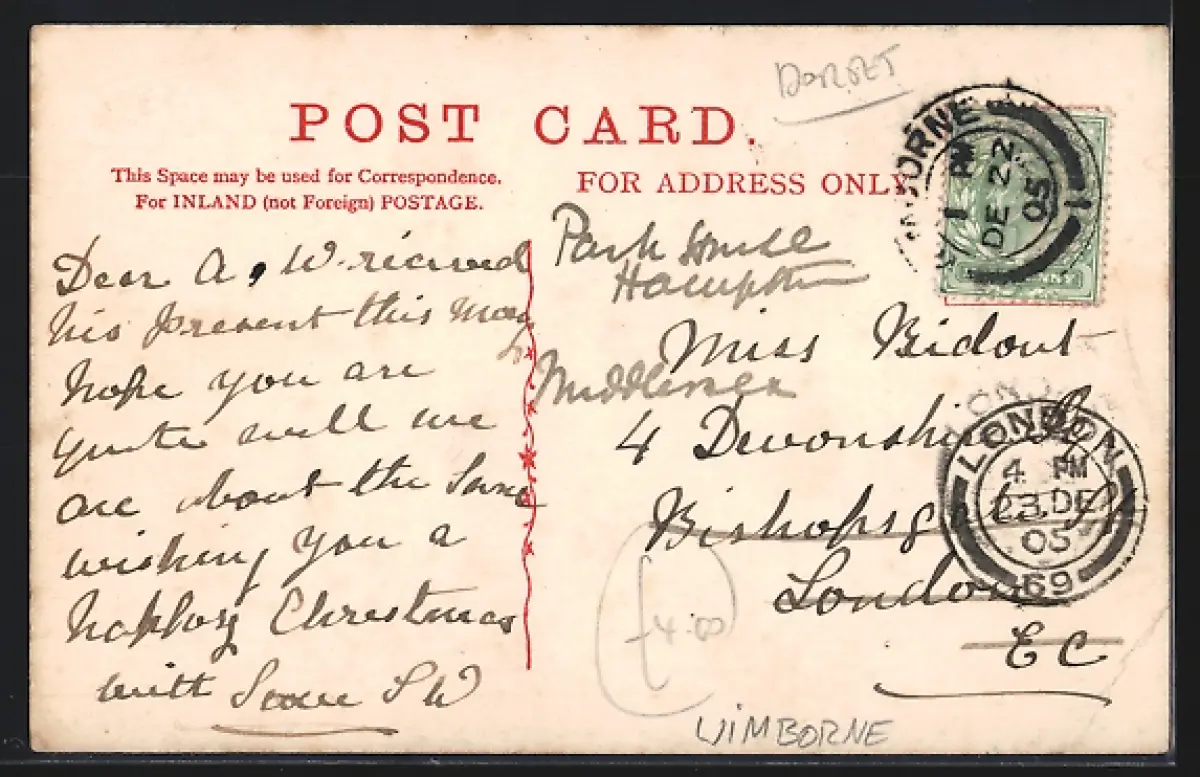 DORSET
POST CARD.
This Space may be used for Correspondence.
For INLAND (not Foreign) POSTAGE.
FOR ADDRESS ONLY
BORNE
1 PM
DE 22
05
1
PENNY
Dear A, W. recieved
his present this Mor
hope you are
quite well we
are about the same
wishing you a
happy Christmas
with Love S W
Park House
Hampton
Middlesex
Miss Ridout
4 Devonshire Sq
Bishopsgate
London
E C
LONDON
4 PM
23. DE
05
69
4.00
WIMBORNE